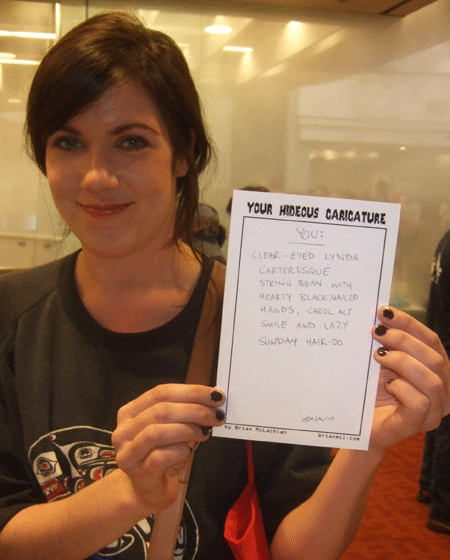 YOUR HIDEOUS CARICATURE
YOU:
CLEAR-EYED LYNDA
CARTERESQUE
STRING BEAN WITH
HEARTY BLACK NAILED
HANDS, CAROL ALT
SMILE AND LAZY
SUNDAY HAIR-DO.
by Brian McLachlan
brianmcl.com